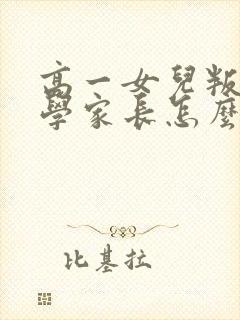 高一女兒叛
學家長怎麼
比基拉